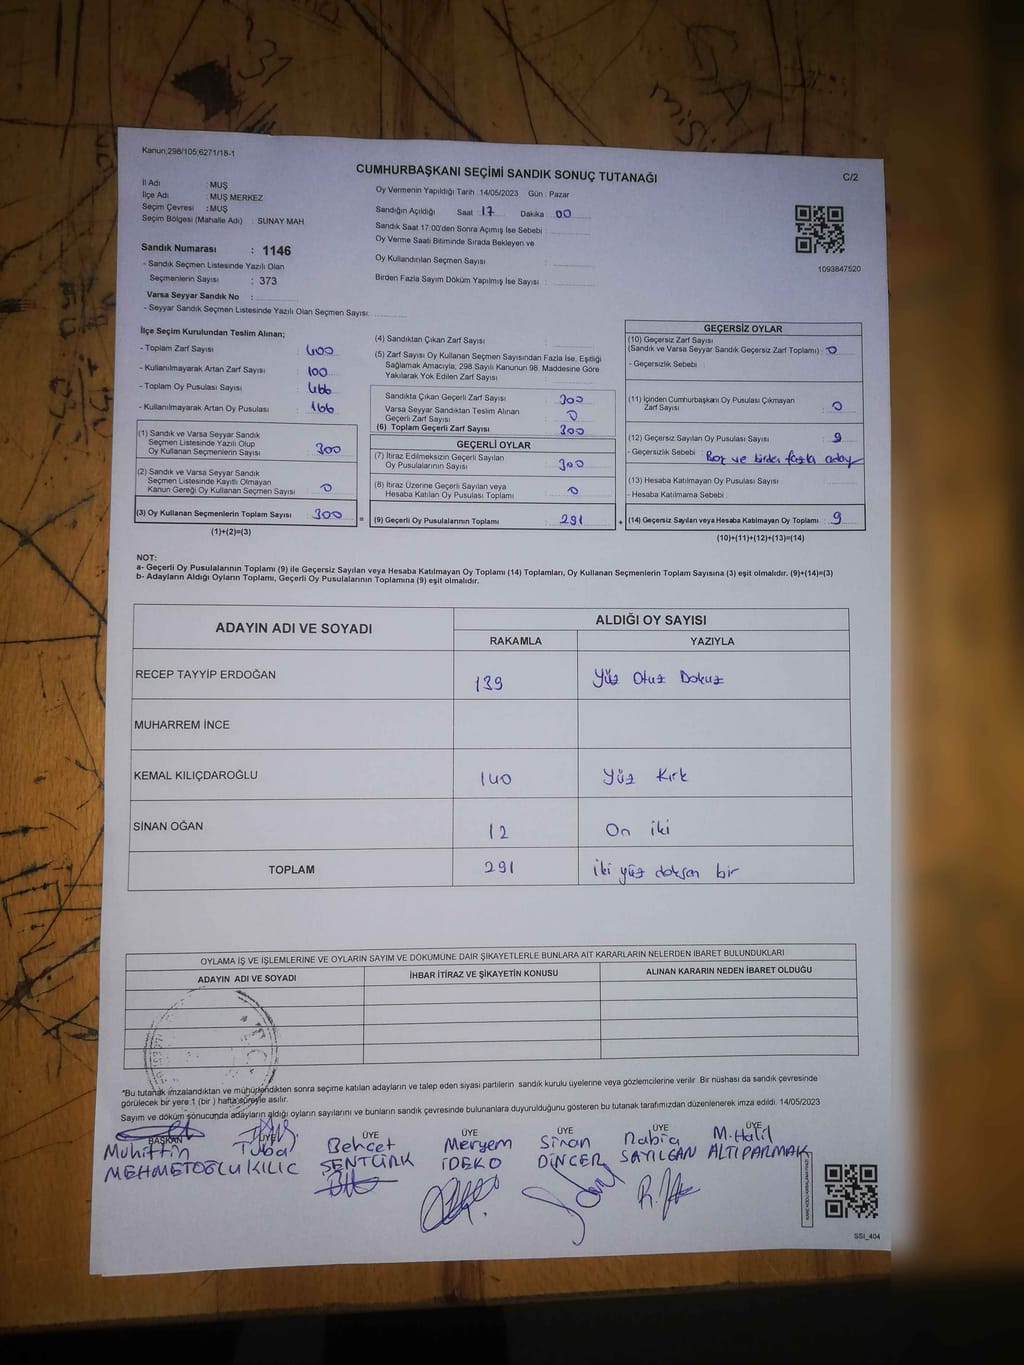 Kanun;298/105;6271/18-1
CUMHURBAŞKANI SEÇİMİ SANDIK SONUÇ TUTANAĞI
C/2
İl Adı : MUŞ
İlçe Adı : MUŞ MERKEZ
Seçim Çevresi : MUŞ
Seçim Bölgesi (Mahalle Adı) : SUNAY MAH
Sandık Numarası : 1146
- Sandık Seçmen Listesinde Yazılı Olan
Seçmenlerin Sayısı : 373
Varsa Seyyar Sandık No :
- Seyyar Sandık Seçmen Listesinde Yazılı Olan Seçmen Sayısı:
Oy Vermenin Yapıldığı Tarih : 14/05/2023 Gün : Pazar
Sandığın Açıldığı Saat 17 Dakika 00
Sandık Saat 17:00'den Sonra Açımış İse Sebebi :
Oy Verme Saati Bitiminde Sırada Bekleyen ve
Oy Kullandırılan Seçmen Sayısı :
Birden Fazla Sayım Döküm Yapılmış İse Sayısı :
1093847520
İlçe Seçim Kurulundan Teslim Alınan;
- Toplam Zarf Sayısı : 400
- Kullanılmayarak Artan Zarf Sayısı : 100
- Toplam Oy Pusulası Sayısı : 466
- Kullanılmayarak Artan Oy Pusulası : 166
(1) Sandık ve Varsa Seyyar Sandık
Seçmen Listesinde Yazılı Olup
Oy Kullanan Seçmenlerin Sayısı : 300
(2) Sandık ve Varsa Seyyar Sandık
Seçmen Listesinde Kayıtlı Olmayan
Kanun Gereği Oy Kullanan Seçmen Sayısı : 0
(3) Oy Kullanan Seçmenlerin Toplam Sayısı : 300
(1)+(2)=(3)
(4) Sandıktan Çıkan Zarf Sayısı :
(5) Zarf Sayısı Oy Kullanan Seçmen Sayısından Fazla İse, Eşitliği
Sağlamak Amacıyla; 298 Sayılı Kanunun 98. Maddesine Göre
Yakılarak Yok Edilen Zarf Sayısı :
Sandıkta Çıkan Geçerli Zarf Sayısı : 300
Varsa Seyyar Sandıktan Teslim Alınan
Geçerli Zarf Sayısı : 0
(6) Toplam Geçerli Zarf Sayısı : 300
GEÇERLİ OYLAR
(7) İtiraz Edilmeksizin Geçerli Sayılan
Oy Pusulalarının Sayısı : 300
(8) İtiraz Üzerine Geçerli Sayılan veya
Hesaba Katılan Oy Pusulası Toplamı : 0
= (9) Geçerli Oy Pusulalarının Toplamı : 291 +
GEÇERSİZ OYLAR
(10) Geçersiz Zarf Sayısı
(Sandık ve Varsa Seyyar Sandık Geçersiz Zarf Toplamı) : 0
- Geçersizlik Sebebi :
(11) İçinden Cumhurbaşkanı Oy Pusulası Çıkmayan
Zarf Sayısı : 0
(12) Geçersiz Sayılan Oy Pusulası Sayısı : 9
- Geçersizlik Sebebi : Boş ve birden fazla aday
(13) Hesaba Katılmayan Oy Pusulası Sayısı :
- Hesaba Katılmama Sebebi :
(14) Geçersiz Sayılan veya Hesaba Katılmayan Oy Toplamı : 9
(10)+(11)+(12)+(13)=(14)
NOT:
a- Geçerli Oy Pusulalarının Toplamı (9) ile Geçersiz Sayılan veya Hesaba Katılmayan Oy Toplamı (14) Toplamları, Oy Kullanan Seçmenlerin Toplam Sayısına (3) eşit olmalıdır. (9)+(14)=(3)
b- Adayların Aldığı Oyların Toplamı, Geçerli Oy Pusulalarının Toplamına (9) eşit olmalıdır.
ADAYIN ADI VE SOYADI
ALDIĞI OY SAYISI
RAKAMLA YAZIYLA
RECEP TAYYİP ERDOĞAN 139 Yüz Otuz Dokuz
MUHARREM İNCE
KEMAL KILIÇDAROĞLU 140 Yüz Kırk
SİNAN OĞAN 12 On iki
TOPLAM 291 iki yüz doksan bir
OYLAMA İŞ VE İŞLEMLERİNE VE OYLARIN SAYIM VE DÖKÜMÜNE DAİR ŞİKAYETLERLE BUNLARA AİT KARARLARIN NELERDEN İBARET BULUNDUKLARI
ADAYIN ADI VE SOYADI İHBAR İTİRAZ VE ŞİKAYETİN KONUSU ALINAN KARARIN NEDEN İBARET OLDUĞU
*Bu tutanak imzalandıktan ve mühürlendikten sonra seçime katılan adayların ve talep eden siyasi partilerin sandık kurulu üyelerine veya gözlemcilerine verilir. Bir nüshası da sandık çevresinde
görülecek bir yere 1 (bir ) hafta süreyle asılır.
Sayım ve döküm sonucunda adayların aldığı oyların sayılarını ve bunların sandık çevresinde bulunanlara duyurulduğunu gösteren bu tutanak tarafımızdan düzenlenerek imza edildi. 14/05/2023
BAŞKAN ÜYE ÜYE ÜYE ÜYE ÜYE ÜYE
Muhittin Tuba Behcet Meryem Sinan Rabia M.Halil
MEHMETOĞLU KILIC ŞENTÜRK İDEKO DİNCER SAYILGAN ALTIPARMAK
SSI_404